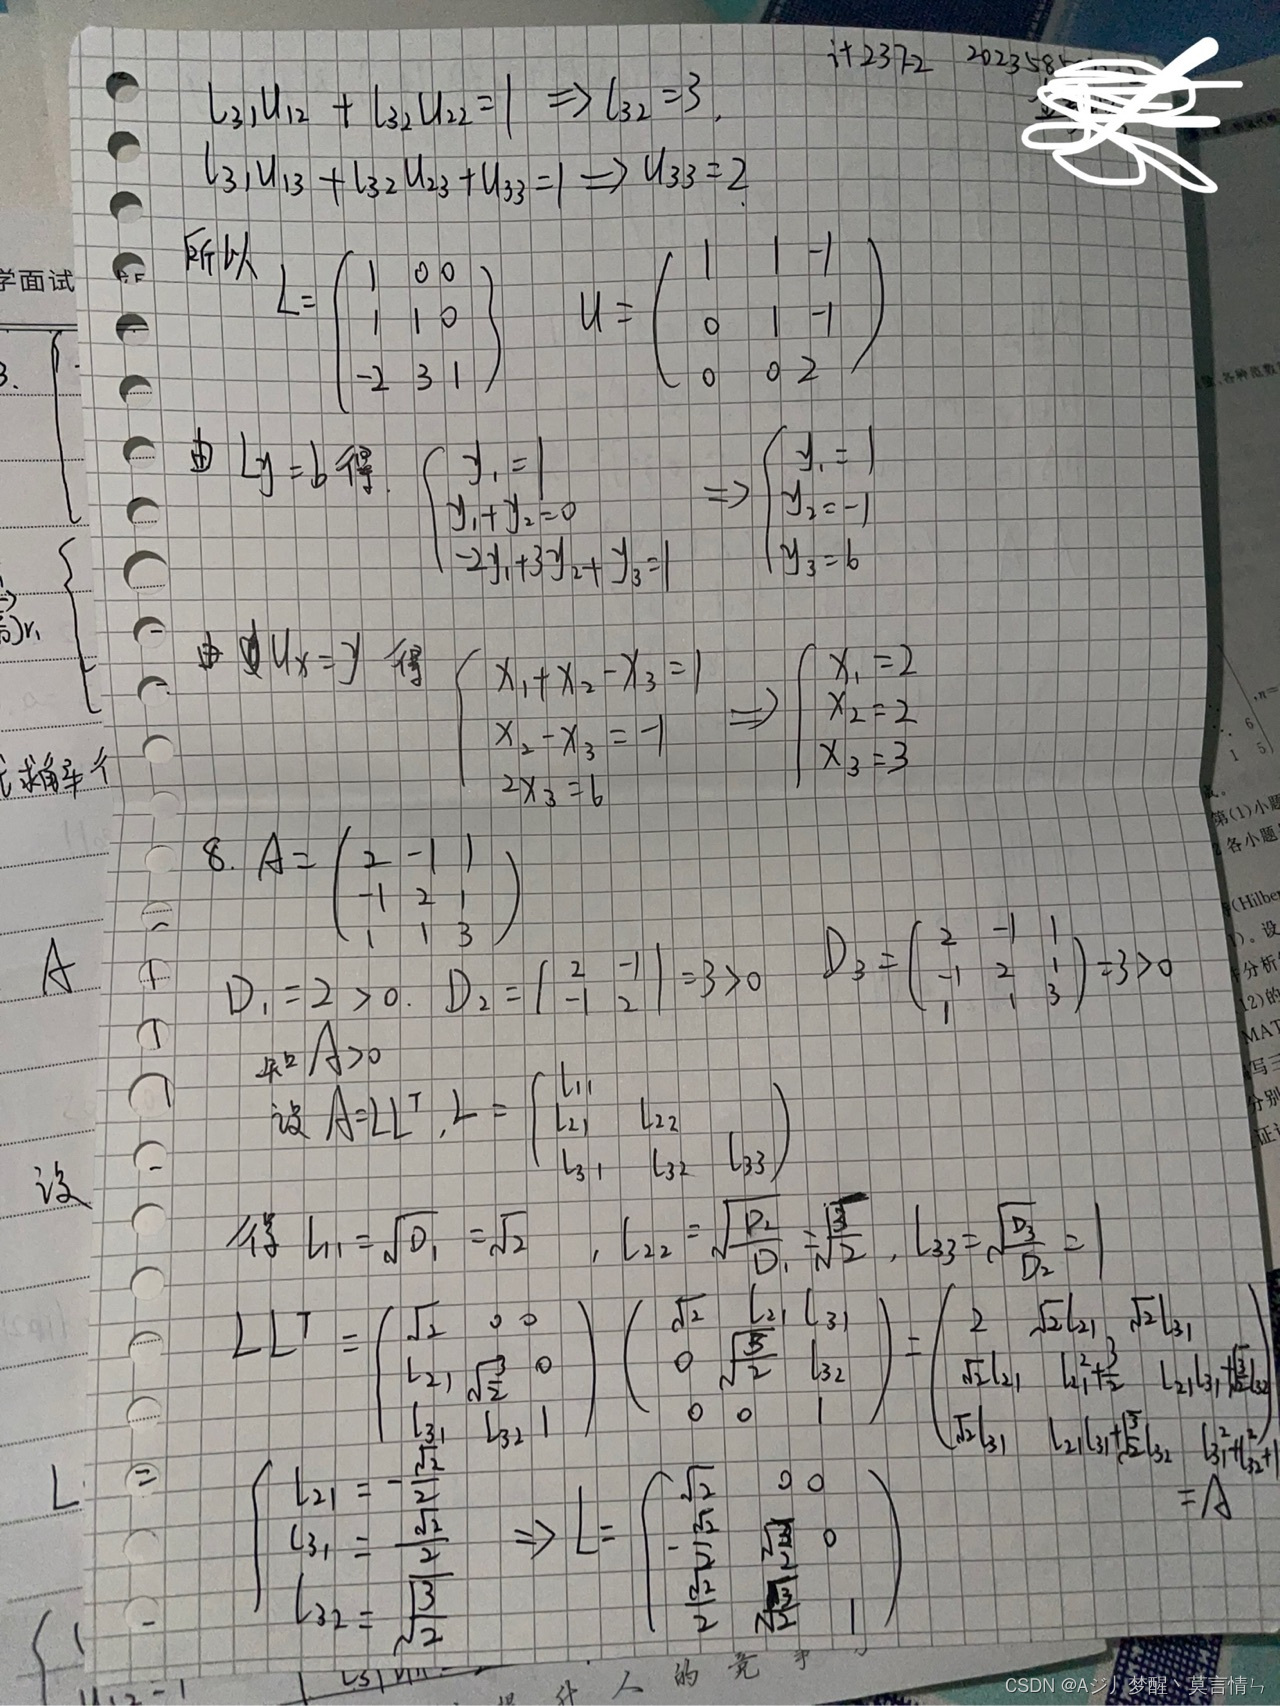 计2372 202358
l₃₁u₁₂ + l₃₂u₂₂ = 1 ⇒ l₃₂ = 3,
l₃₁u₁₃ + l₃₂u₂₃ + u₃₃ = 1 ⇒ u₃₃ = 2
所以
L = ( 1 0 0
1 1 0
-2 3 1 )
U = ( 1 1 -1
0 1 -1
0 0 2 )
由 Ly = b 得. { y₁ = 1
y₁ + y₂ = 0
-2y₁ + 3y₂ + y₃ = 1
⇒ { y₁ = 1
y₂ = -1
y₃ = 6
由 Ux = y 得 { x₁ + x₂ - x₃ = 1
x₂ - x₃ = -1
2x₃ = 6
⇒ { x₁ = 2
x₂ = 2
x₃ = 3
8. A = ( 2 -1 1
-1 2 1
1 1 3 )
D₁ = 2 > 0. D₂ = | 2 -1
-1 2 | = 3 > 0
D₃ = ( 2 -1 1
-1 2 1
1 1 3 ) = 3 > 0
知 A > 0
设 A = LLᵀ, L = ( l₁₁
l₂₁ l₂₂
l₃₁ l₃₂ l₃₃ )
得 l₁₁ = √D₁ = √2 , l₂₂ = √(D₂/D₁) = √(3/2) , l₃₃ = √(D₃/D₂) = 1
LLᵀ = ( √2 0 0
l₂₁ √(3/2) 0
l₃₁ l₃₂ 1 )
( √2 l₂₁ l₃₁
0 √(3/2) l₃₂
0 0 1 )
= ( 2 √2l₂₁ √2l₃₁
√2l₂₁ l₂₁² + 3/2 l₂₁l₃₁ + √(3/2)l₃₂
√2l₃₁ l₂₁l₃₁ + √(3/2)l₃₂ l₃₁² + l₃₂² + 1 )
= A
{ l₂₁ = -√2/2
l₃₁ = √2/2
l₃₂ = √(3/2)
⇒ L = ( √2 0 0
-√2/2 √(3/2) 0
√2/2 √(3/2) 1 )
学面试
3.
A
设
L =
第(1)小题
各小题
(Hilber
分析
12)的
MAT
写三
分别
证
人 的 竞 争
CSDN @Aジ丿梦醒丶莫言情ㄣ